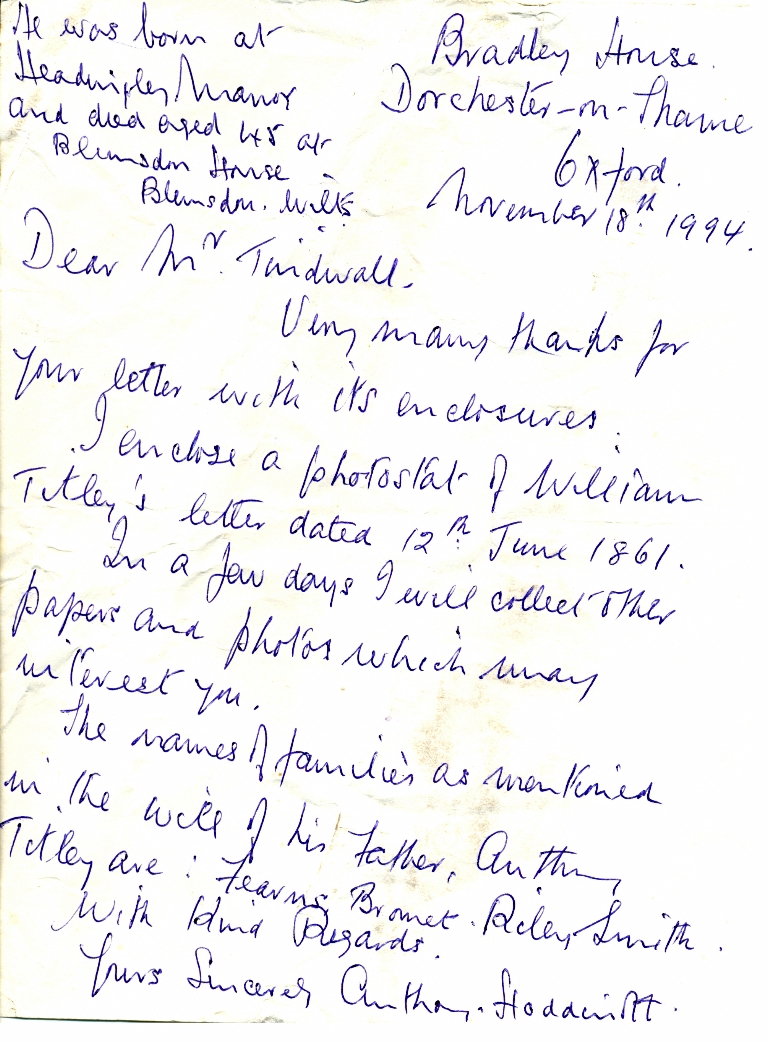 He was born at
Headingley Manor
and died aged 48 at
Blunsdon House
Blunsdon. Wilts
Bradley House.
Dorchester-on-Thame
Oxford.
November 18th. 1994.
Dear Mr.
Very many thanks for
your letter with its enclosures.
I enclose a photostat of William
Titley's letter dated 12th June 1861.
In a few days I will collect other
papers and photos which may
interest you.
The names of families as mentioned
in the will of his Father, Anthony
Titley are: Fearns Bromet. Riley Smith.
With Kind Regards.
Yours Sincerely Anthony. Hoddinott.